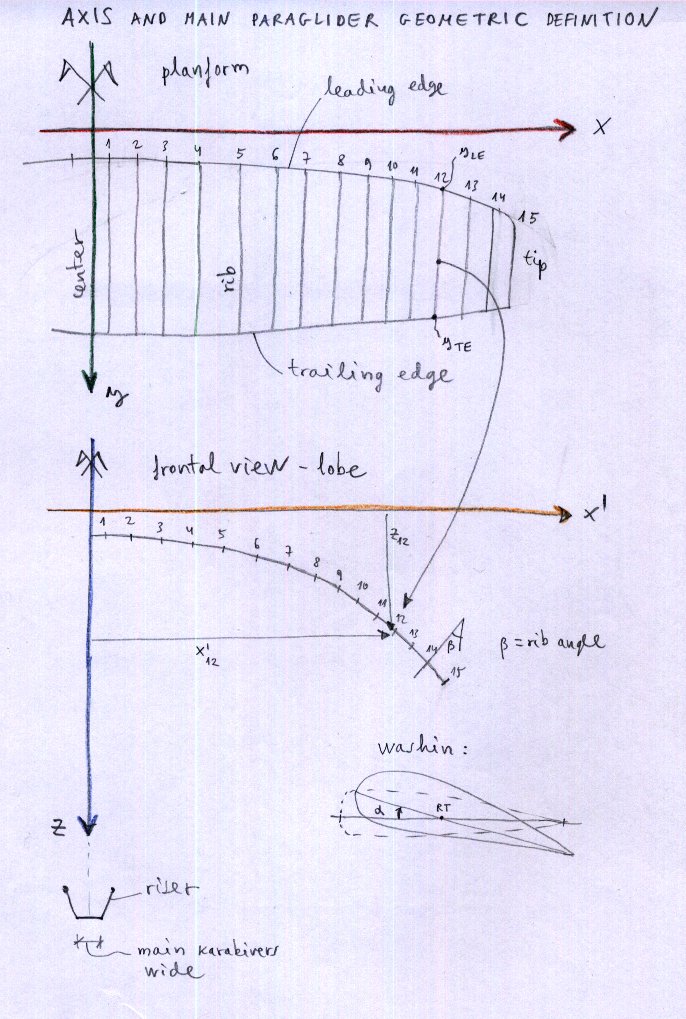 AXIS AND MAIN PARAGLIDER GEOMETRIC DEFINITION
planform
leading edge
X
1 2 3 4 5 6 7 8 9 10 11 12 13 14 15
yLE
center
rib
tip
yTE
trailing edge
y
frontal view - lobe
X'
1 2 3 4 5 6 7 8 9 10 11 12 13 14 15
Z12
β
β = rib angle
X'12
washin:
α
RT
Z
riser
main karabiners
wide